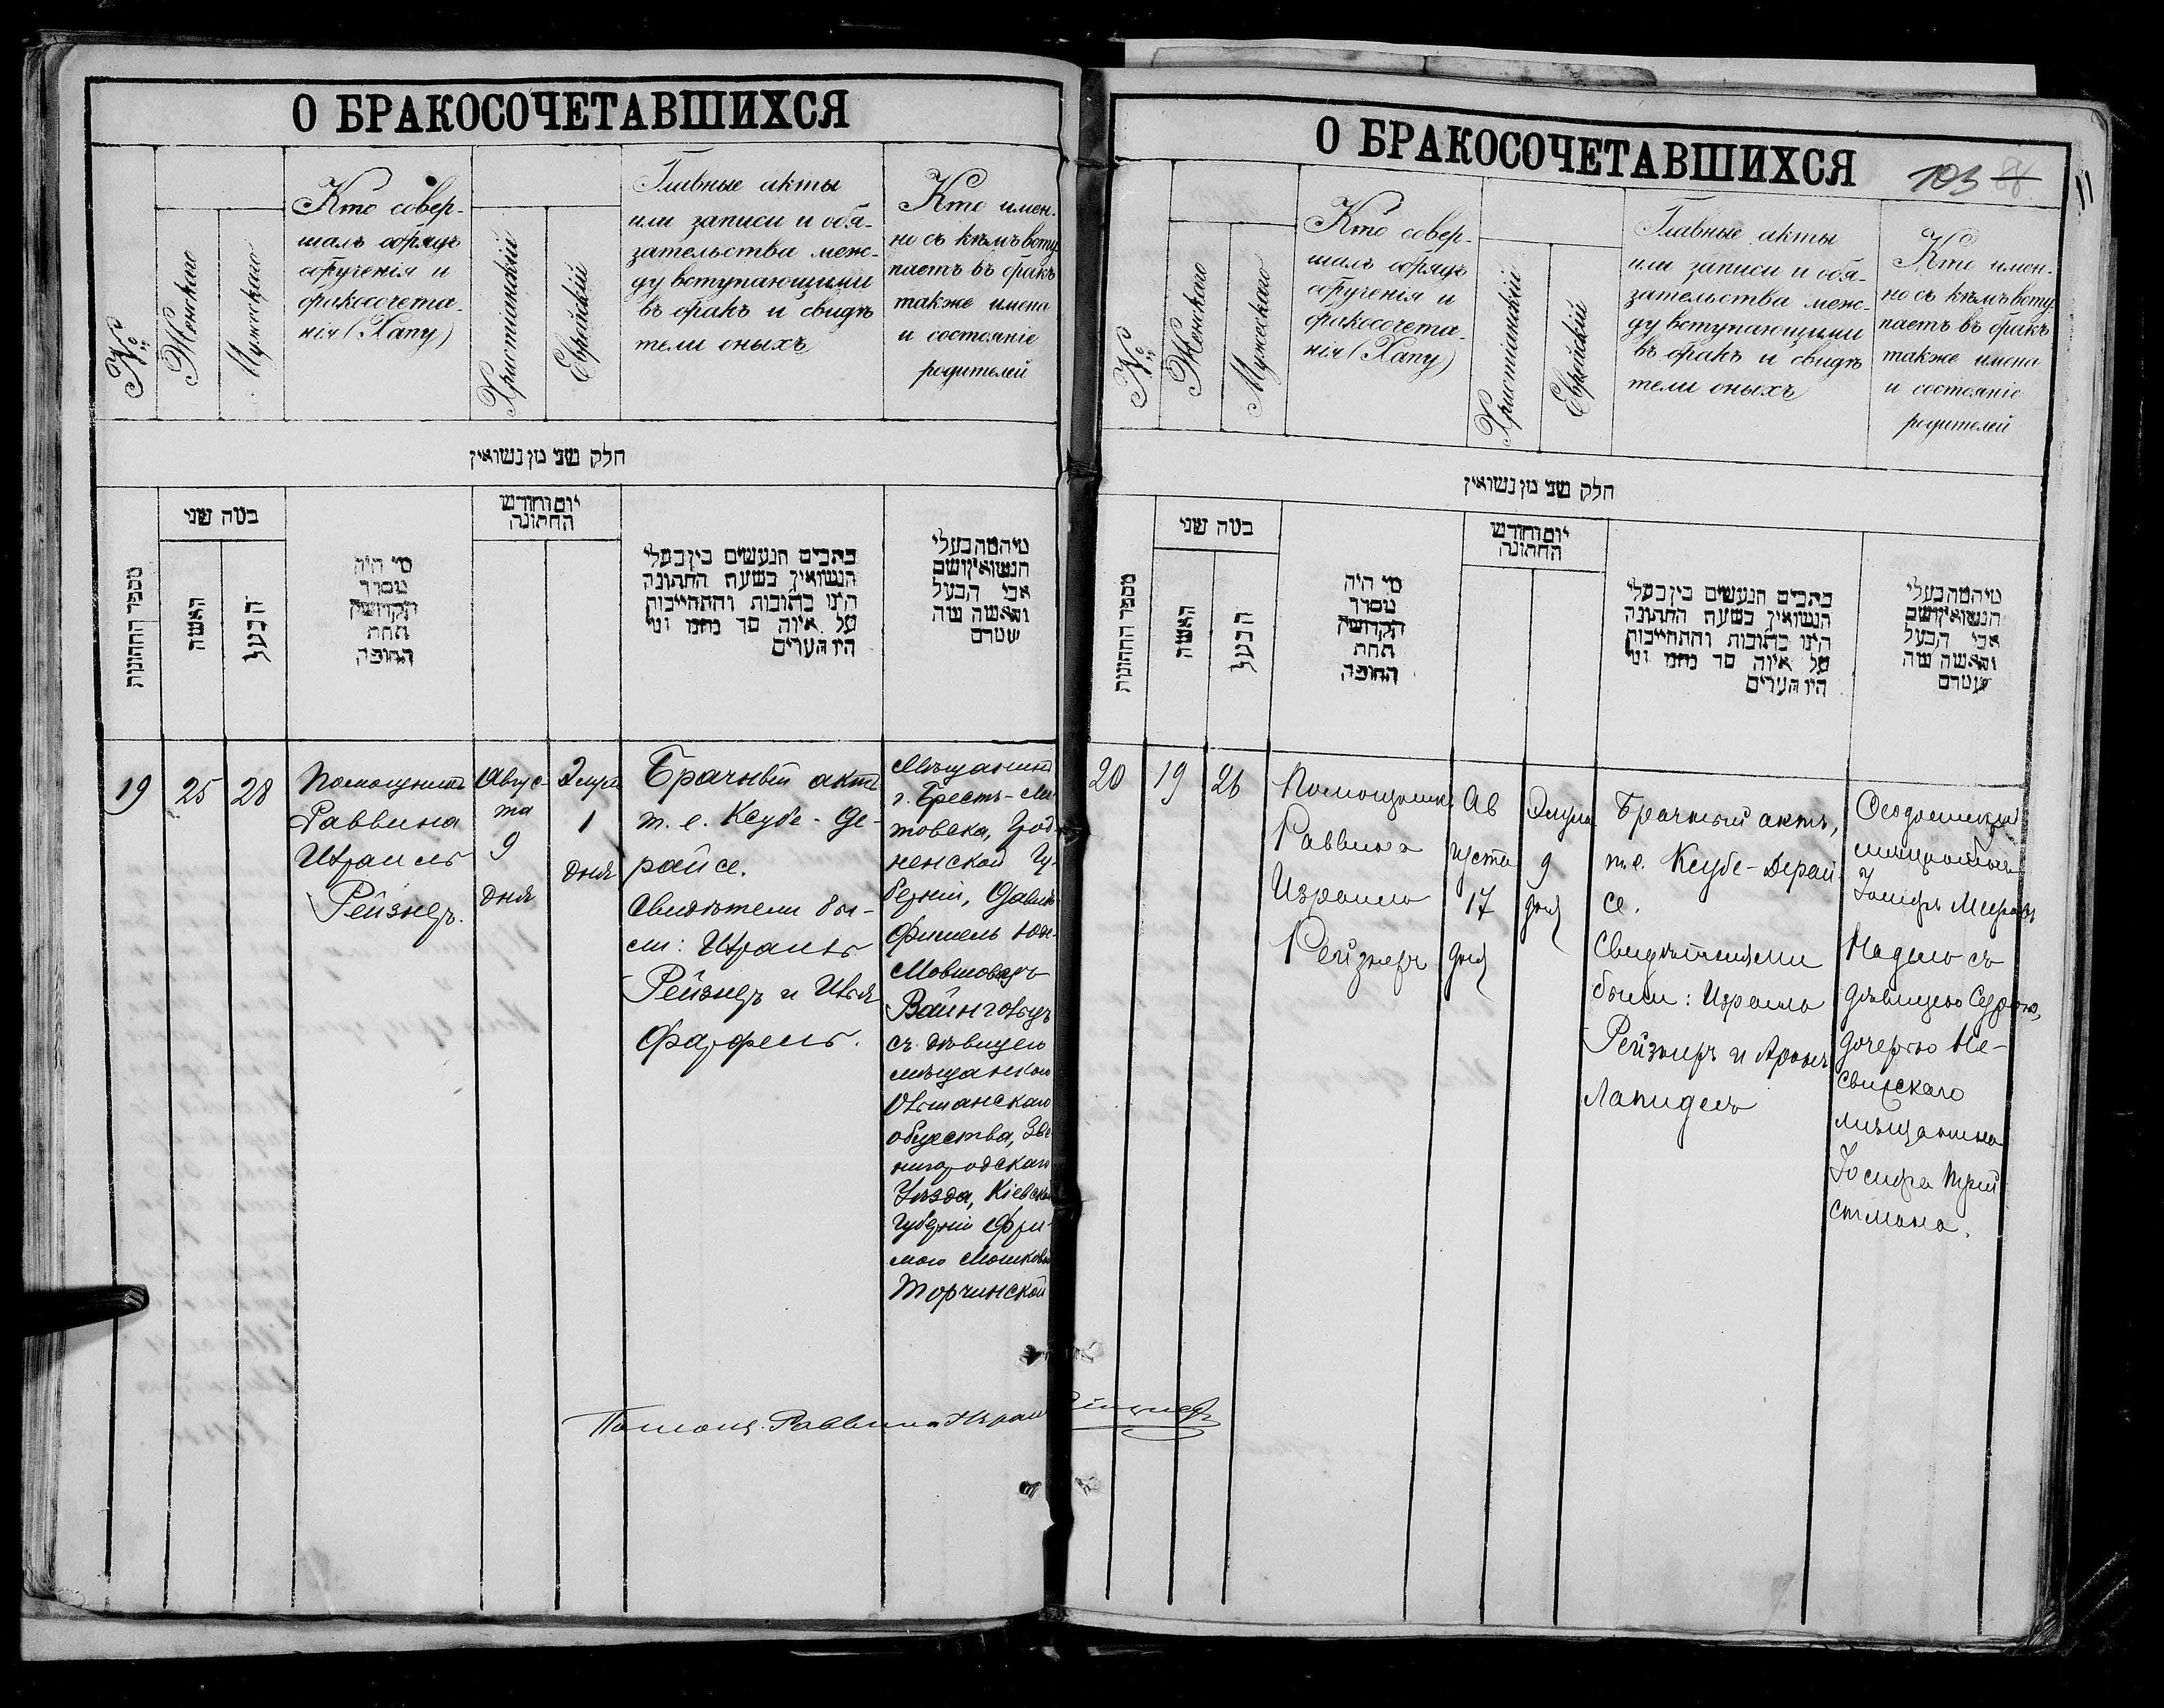 О БРАКОСОЧЕТАВШИХСЯ
№
Женскаго
Мужскаго
Кто совер-
шалъ обрядъ
обрученія и
бракосочета-
нія (Хапу)
Христіанскій
Еврейскій
Главные акты
или записи и обя-
зательства меж-
ду вступающими
въ бракъ и свидѣ
тели оныхъ
Кто имен-
но съ кѣмъ всту
паетъ въ бракъ
также имена
и состояніе
родителей
חלק שני מן נשואין
מספר החתונות
כמה שני
האשה
הבעל
מי היה
מסדר
הקדושין
תחת
החופה
יום וחודש
החתונה
כתבים הנעשים בין בעלי
הנשואין בשעת החתונה
היינו כתובות והתחייבות
על איזה סך כתבו ומי
היו העדים
מי המה בעלי
הנשואין ושם
אבי הבעל
והאשה
19
25
28
Помощникъ
Раввина
Израиль
Рейзнеръ.
Авгус-
та
9
дня
Элула
1
дня
Брачный актъ
т. е. Ксубе-Де-
райсе.
Свидѣтели бы-
ли: Израиль
Рейзнеръ и
Фарфель.
Мѣщанинъ
г. Брестъ-Ли-
товска, Грод-
ненской Гу-
берніи,
Фишель
Мовшовъ
Вайнгольцъ
съ дѣвицею
мѣщанкою
Ольшанскаго
общества, Зве-
нигородскаго
Уѣзда, Кіевской
Губерніи Фру-
мою Мошковой
Торчинской
Помощ. Раввина Израиль Рейзнеръ
О БРАКОСОЧЕТАВШИХСЯ
103
88
11
№
Женскаго
Мужскаго
Кто совер-
шалъ обрядъ
обрученія и
бракосочета-
нія (Хапу)
Христіанскій
Еврейскій
Главные акты
или записи и обя-
зательства меж-
ду вступающими
въ бракъ и свидѣ
тели оныхъ
Кто имен-
но съ кѣмъ всту
паетъ въ бракъ
также имена
и состояніе
родителей
חלק שני מן נשואין
מספר החתונות
כמה שני
האשה
הבעל
מי היה
מסדר
הקדושין
תחת
החופה
יום וחודש
החתונה
כתבים הנעשים בין בעלי
הנשואין בשעת החתונה
היינו כתובות והתחייבות
על איזה סך כתבו ומי
היו העדים
מי המה בעלי
הנשואין ושם
אבי הבעל
והאשה
20
19
26
Помощникъ
Раввина
Израиль
Рейзнеръ
Ав
густа
17
дня
Элула
9
дня
Брачный актъ,
т.е. Ксубе-Дерай
се.
Свидѣтелями
были: Израиль
Рейзнеръ и Аронъ
Лапидесъ
Ѳеодосійскій
мѣщанинъ
съ
дѣвицею
дочерью Не-
свижскаго
мѣщанина
Іосифа